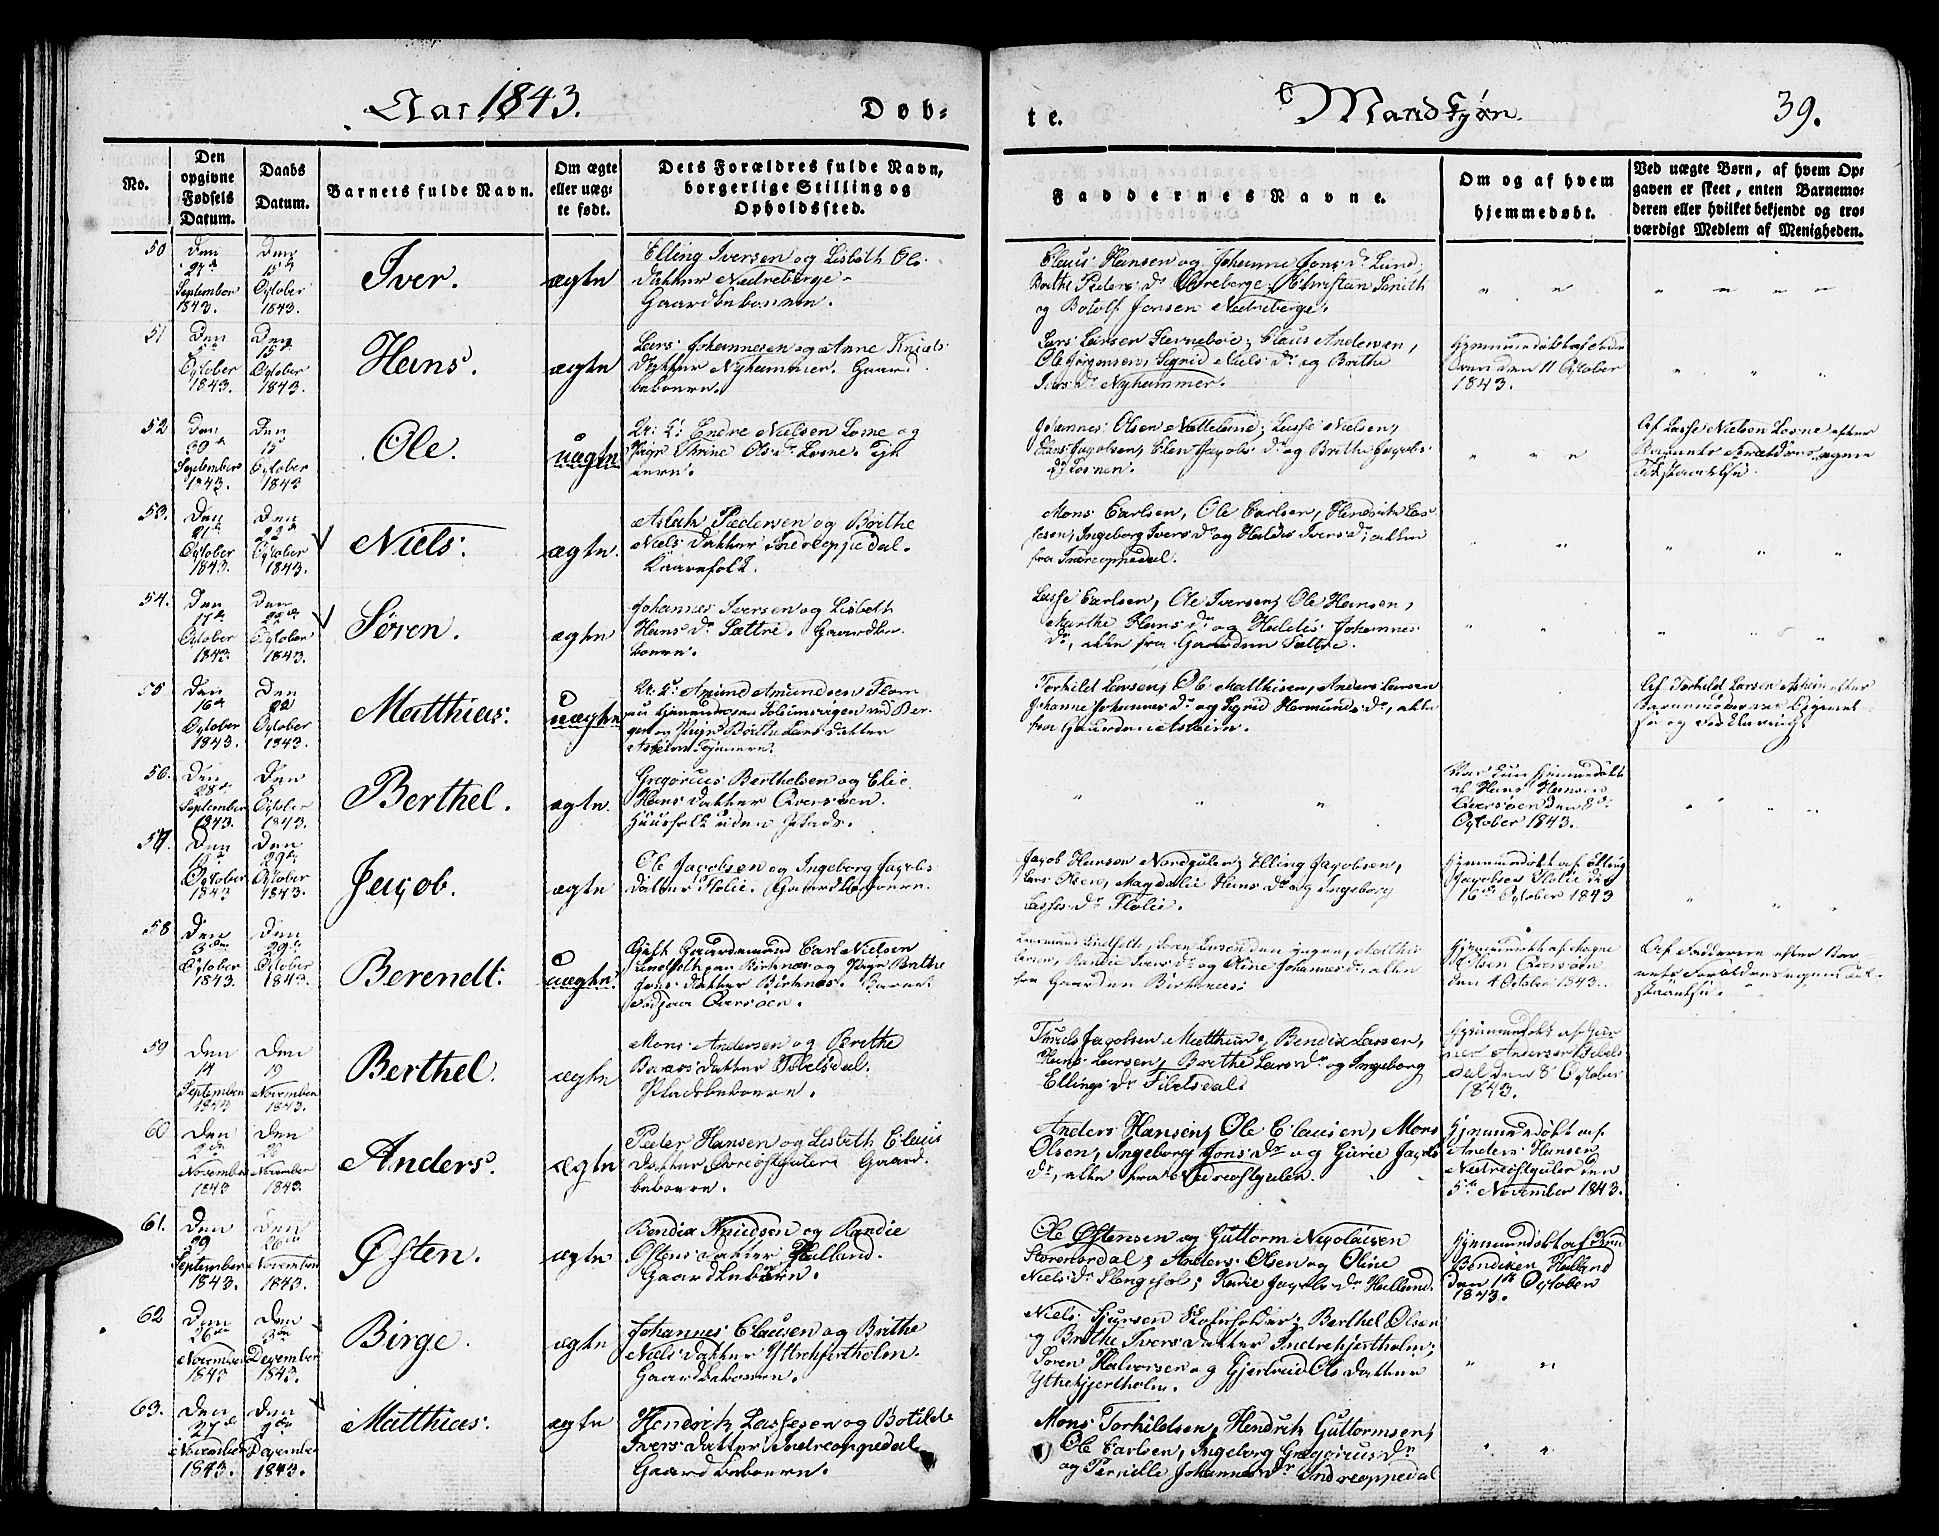 Aar 1843.
Døb-
te.
Mandkjøn.
39.
No.
Den opgivne Fødsels Datum.
Daabs Datum.
Barnets fulde Navn.
Om ægte eller uæg-te født.
Dets Forældres fulde Navn, borgerlige Stilling og Opholdssted.
Faddernes Navne.
Om og af hvem hjemmedøbt.
Ved uægte Børn, af hvem Op-gaven er skeet, enten Barnemo-deren eller hvilket bekjendt og tro-værdigt Medlem af Menigheden.
50
Den 27de September 1843.
Den 15de October 1843.
Iver.
ægte
Elling Iversen og Lisbeth Ols
datter Nedreberge
Gaardbeboere.
Claus Hansen og Johanne Jons Dr Lund,
Brithe Peders Dr Øvreberge, Christian Smith
og Botolf Jonsen Nedreberge.
51
Den 5 October 1843.
Den 15de October 1843.
Hans.
ægte
Lars Johannesen og Anne Niels
datter Nyhammer. Gaard
beboere.
Lars Larsen Steenebøe, Claus Andersen,
Ole Jørgensen, Sigrid Niels Dr og Brithe
Ivers Dr Nyhammer.
den 11 October
1843.
52
Den 30te September 1843.
Den 15 October 1843
Ole.
uægte
U: K: Endre Nielsen Losne og
Pige Thrine Ols Dr Losne.
Johannes Olsen Nætteland, Lasse Nielsen,
Hans Jacobsen, Elen Jacobs Dr og Brithe Jacobs
Dr Losnen.
Af Lasse Nielsen Losne efter
Barnets Forældres egen
Tilstaaelse.
53.
Den 21de October 1843.
Den 22de October 1843.
Niels.
ægte.
Aslak Pedersen og Brithe
Niels datter Indreoppedal.
Kaarefolk.
Mons Carlsen, Ole Carlsen, Hendrik Las-
sesen, Ingeborg Ivers Dr og Haldis Ivers Dr, alle
fra Indreoppedal.
54.
Den 17de October 1843.
Den 22de October 1843.
Søren.
ægte
Johannes Iversen og Lisbeth
Hans Dr Sættre. Gaardbe-
boere.
Lasse Carlsen, Ole Iversen, Ole Hansen,
Marthe Hans Dr og Haldis Johannes
Dr, alle fra Gaarden Sættre.
55
Den 16de October 1843.
Den 22 October 1843.
Matthias.
uægte
U: K: Amund Amundsen
Torkild Larsen, Ole Mathisen, Anders Larsen
Johanne Johannes Dr og Sigrid Hermunds Dr, alle
fra Gaarden Asheim.
Af Torkild Larsen Asheim efter
56.
Den 28de September 1843.
Den 8 October 1843.
Berthel.
ægte.
Gregorius Berthelsen og Elie
Hans datter Qversøen.
Huusfolk uden Plads.
Var kun hjemmedøbt
af Hans Hansen
Qversøen den 8de
October 1843.
57
October 1843
Den 29de October 1843.
Jacob.
ægte
Ole Jacobsen og Ingeborg Jacobs
datter Flolie. Gaardbeboere.
Jacob Hansen Nordgulen, Elling Jacobsen,
Lars Olsen, Magdalie Hans Dr og Ingeborg
Lasses Dr Flolie.
Hjemmedøbt af Elling
Jacobsen Flolie den
16de October 1843
58
Den 3die October 1843.
Den 29de October 1843.
Berendt.
uægte.
Gift Gaardmand Carl Nielsen
Birknæs og Pige Brithe
Jons datter Birknæs.
Qversøen.
Søren Larsen den yngre,
Randie Ivers Dr og Oline Johannes Dr, alle
fra Gaarden Birknæs.
Hjemmedøbt af Mogne
Olsen Qversøen
den 4 October 1843.
Af Fadderne efter Bar-
nets Forældres egen Til-
staaelse.
59
Den 14 September 1843
Den 19 November 1843.
Berthel.
ægte
Mons Andersen og Brithe
datter Fibelsdal.
Pladsbeboere.
Truls Jacobsen Matthias, Bendix Larsen,
Hans Larsen, Brithe Lars Dr og Ingeborg
Ellings Dr Fibelsdal.
Hjemmedøbt af Gun-
ner Andersen Fibels-
dal den 8de October
1843.
60
Den November 1843
Den 26 November 1843.
Anders.
ægte
Peder Hansen og Lisbeth Claus
datter Gaard-
beboere.
Anders Hansen, Ole Clausen, Mons
Olsen, Ingeborg Jons Dr og Gurie Jacobs
Dr, alle fra Nedreøstgulen.
Hjemmedøbt af
Anders Hansen
Nedreøstgulen den
5te November 1843.
61.
Den 29 September 1843.
Den 26de November 1843.
Østen.
ægte
Bendix Knudsen og Randie
Østens datter Halland.
Gaardbeboere.
Ole Østensen og Guttorm Nicolaisen
Storemordal; Anders Olsen og Oline
Niels Dr Slengesol; Karie Jacobs Dr Halland.
Hjemmedøbt af Knud
Bendixen Halland
den 1ste October
1843.
62
Den 26de November 1843
Den 3die December 1843.
Birge.
ægte
Johannes Clausen og Brithe
Niels datter Yttrehjertholm
Gaardbeboere.
Niels Sjursen Berthel Olsen
og Brithe Ivers datter Indrehjertholm;
Søren Halvorsen og Gjertrud Ols datter
Yttrehjertholm.
63.
Den 27de November 1843.
Den December 1843.
Matthias.
ægte
Hendrik Lassesen og Botilde
Ivers datter Indreoppedal
Gaardbeboere.
Mons Torkildsen, Hendrik Guttormsen,
Ole Carlsen, Ingeborg Gregorius Dr
og Pernille Johannes Dr Indreoppedal